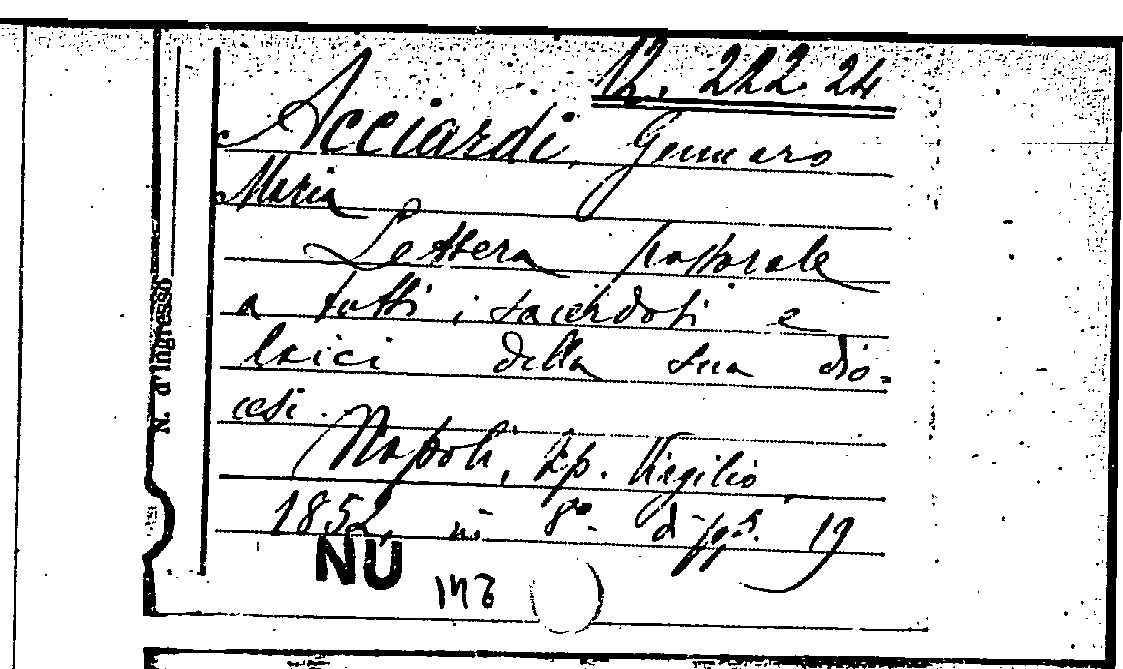 12. 222 24
Acciardi, Gennaro
Maria
Lettera pastorale
a tutti i sacerdoti e
laici della sua dio-
cesi.
Napoli, tip. Virgilio
1852, in 8º di pp. 19
NU
N. d'Ingresso